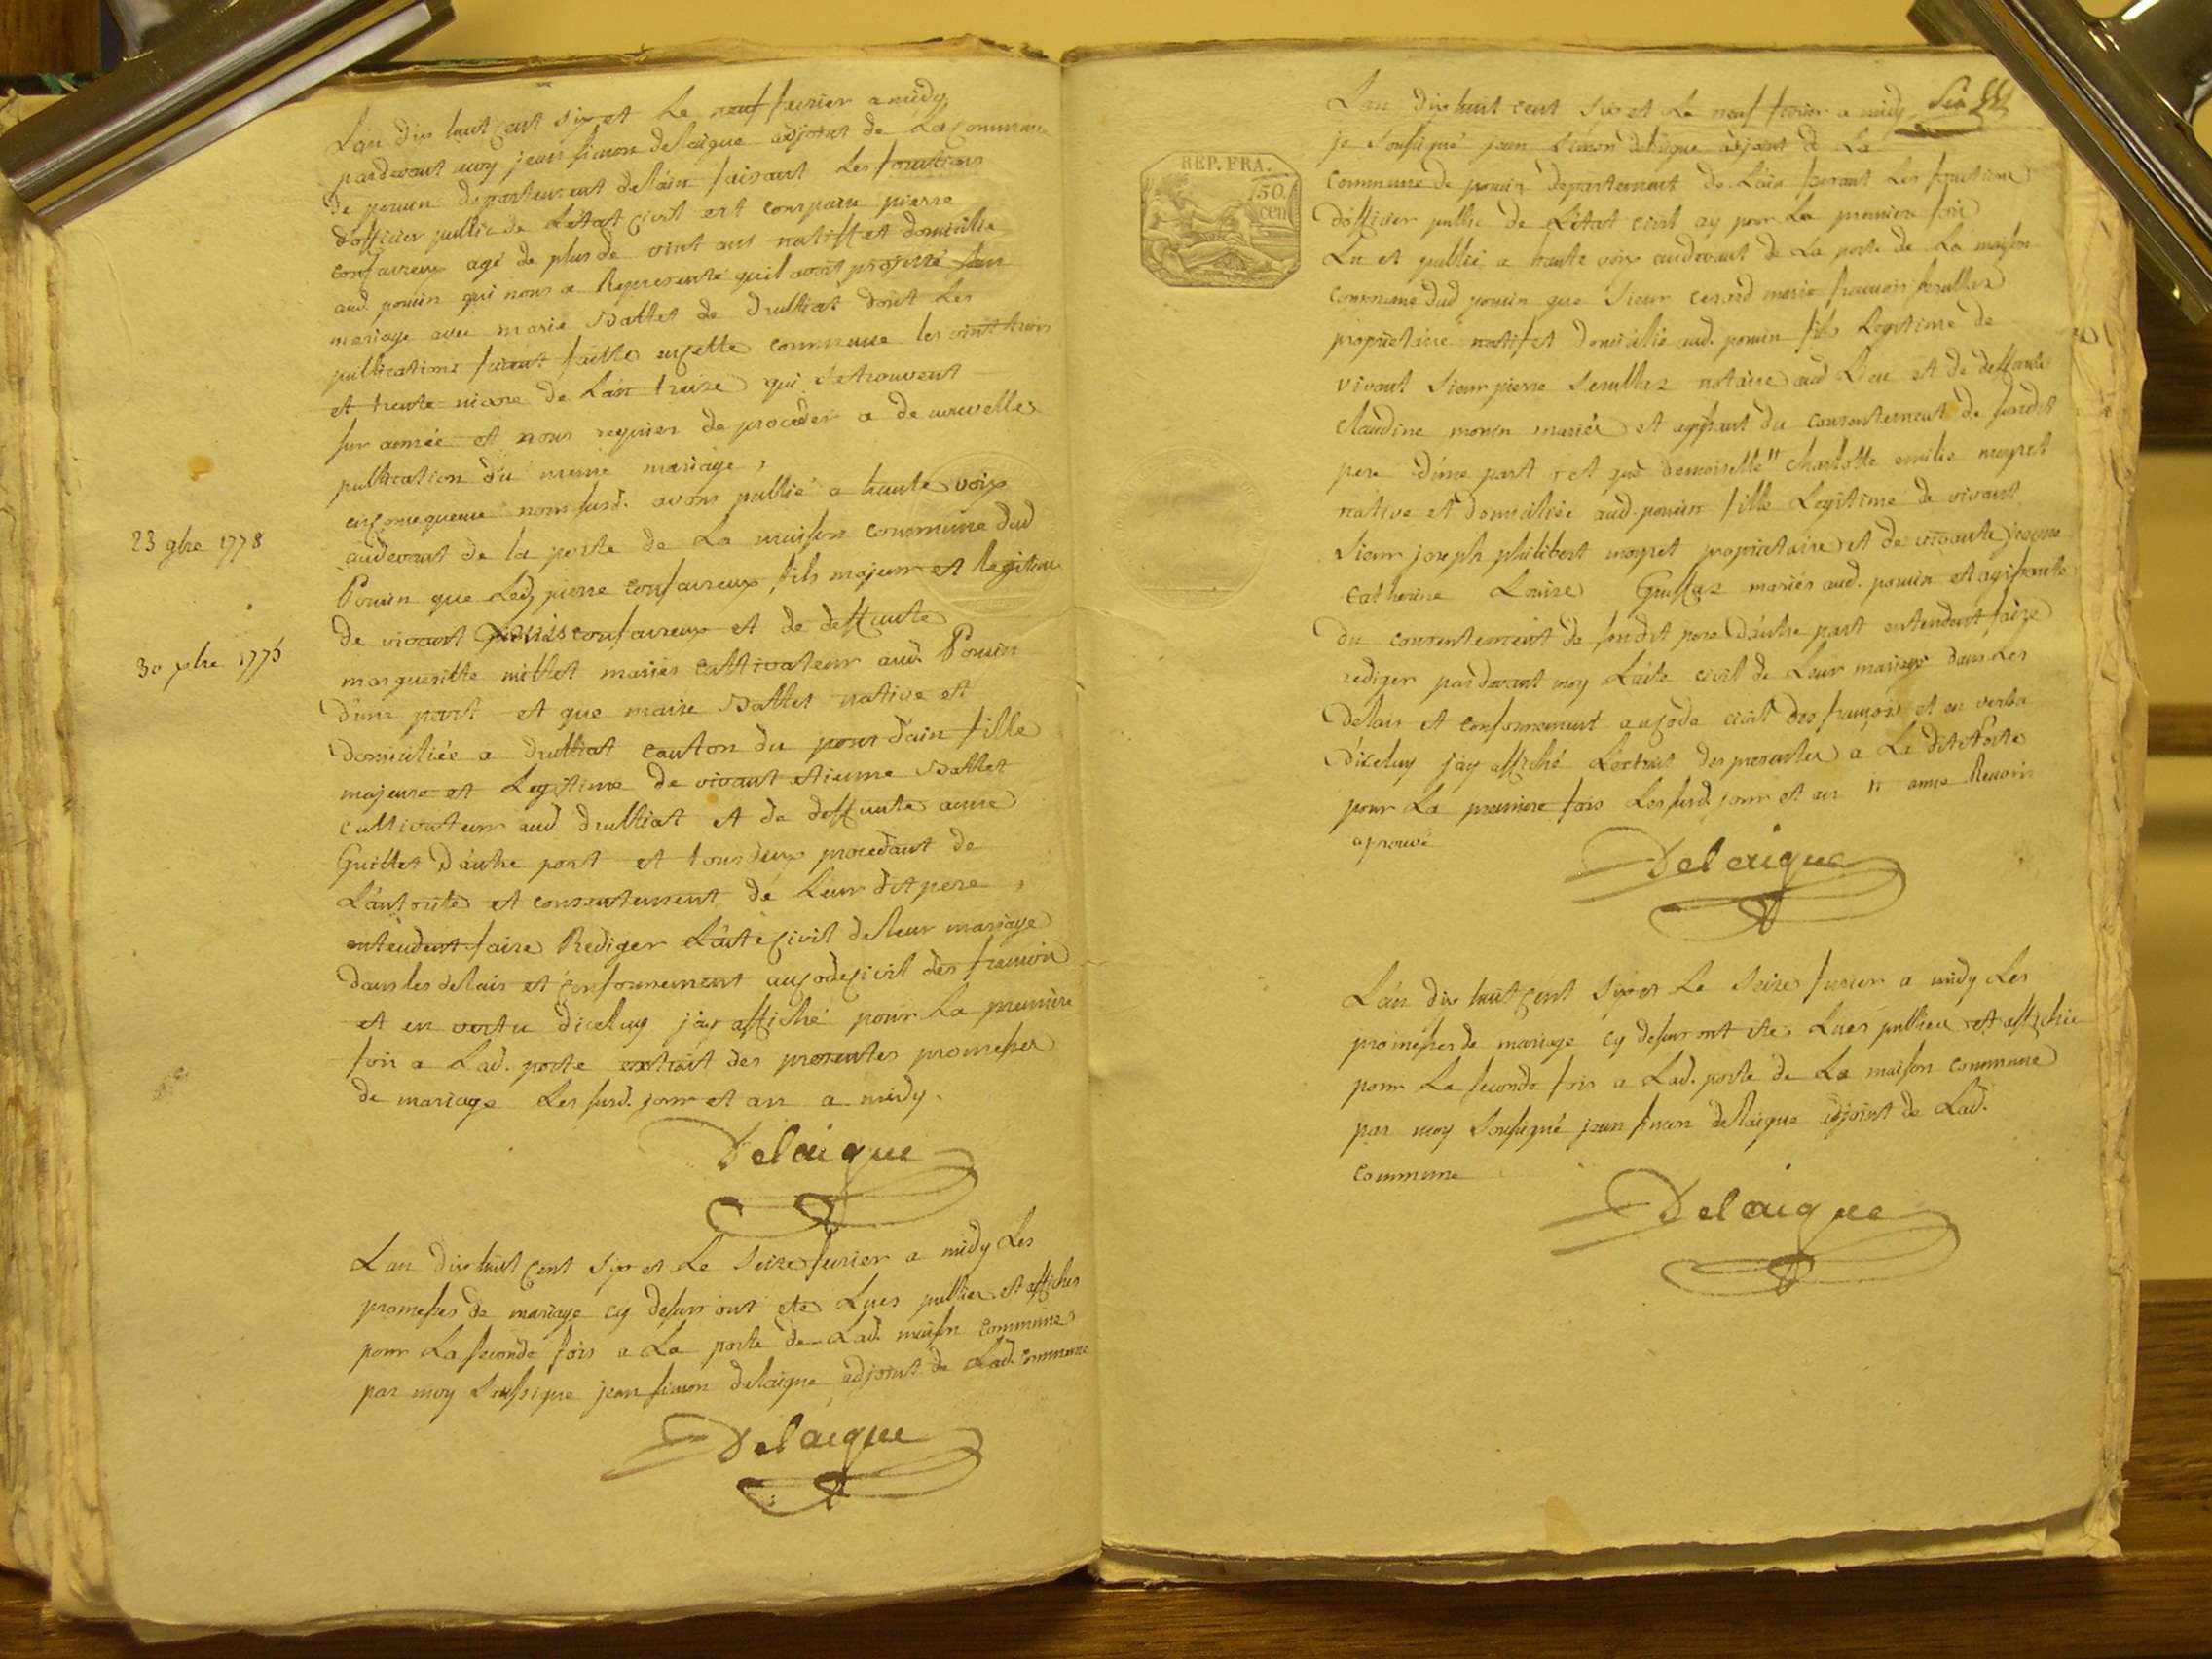 L'an dix huit cent six et Le neuf fevrier a midy
pardevant moy jean simon delaigue adjoint de La Commune
de poncin departement de l'ain faisant Les fonctions
d'officier public de L'état civil est comparu pierre
confavreux agé de plus de vint ans natif et domicilie
aud. poncin qui nous a Representé quil avoit projetté son
mariage avec marie Battet de Druilliat dont Les
publications furent faittes en cette commune les vint trois
et trente nivose de L'an treize qui se trouvent
sur année et nous requier de procéder a de nouvelles
publication du meme mariage,
en consequence nous susd. avons publié a haute voix
audevant de la porte de La maison commune dud
Poncin que Led. pierre confavreux fils majeur et legitime
23 9bre 1778
de vivant confavreux et de deffunte
30 xbre 1776
margueritte millet mariés cultivateur aud. Poncin
d'une part et que marie Battet native et
domiciliée a druilliat canton du pont d'ain fille
majeure et Legitime de vivant etienne Battet
cultivateur aud druilliat et de deffunte anne
Guillet d'autre part et tous deux procedant de
L'autorité et consentement de Leur dit pere,
entendent faire Rediger L'acte civil de leur mariage
dans les delais et conformement au code civil des francois
et en vertu diceluy j'ay affiché pour La premiere
fois a Lad. porte extrait des presentes promesses
de mariage Les susd. jour et an a midy.
Delaigue
L'an dix huit cent six et Le seize fevrier a midy Les
promesses de mariage cy dessus ont ete Lues publiees et affichés
pour La seconde fois a La porte de Lad. maison commune
par moy soussigne jean simon delaigue adjoint de Lad. commune
Delaigue
REP. FRA.
50.
cen
L'an dix huit cent six et Le neuf fevrier a midy
je soussigné jean simon delaigue adjoint de La
commune de poncin departement de L'ain faisant Les fonctions
d'officier public de L'état civil ay pour La premiere fois
Lu et publié a haute voix audevant de La porte de La maison
commune dud poncin que Sieur cesard marie francois
propriétaire natif et domicilié aud. poncin fils Legitime de
vivant Sieur pierre notaire aud Lieu et de deffunte
claudine monin mariés et agissant du consentement de sondit
pere d'une part, et que demoiselle " charlotte emilie moyret
native et domiciliée aud. poncin fille Legitime de vivant
Sieur joseph philibert moyret proprietaire et de vivante jeanne
catherine Louise mariés aud. poncin et agissante
du consentement de sondit pere d'autre part entendent faire
rediger pardevant moy L'acte civil de Leur mariage dans Les
delais et conformement au code civil des françois et en vertu
diceluy j'ay affiché L'extrait des presentes a La ditte Porte
pour La premiere fois Les susd. jour et an " anne Renvoi
aprouvé
Delaigue
L'an dix huit cent six et Le seize fevrier a midy Les
promesses de mariage cy dessus ont ete Lues publiees et affichée
pour La seconde fois a Lad. porte de La maison commune
par moy soussigné jean simon delaigue adjoint de Lad.
commune
Delaigue